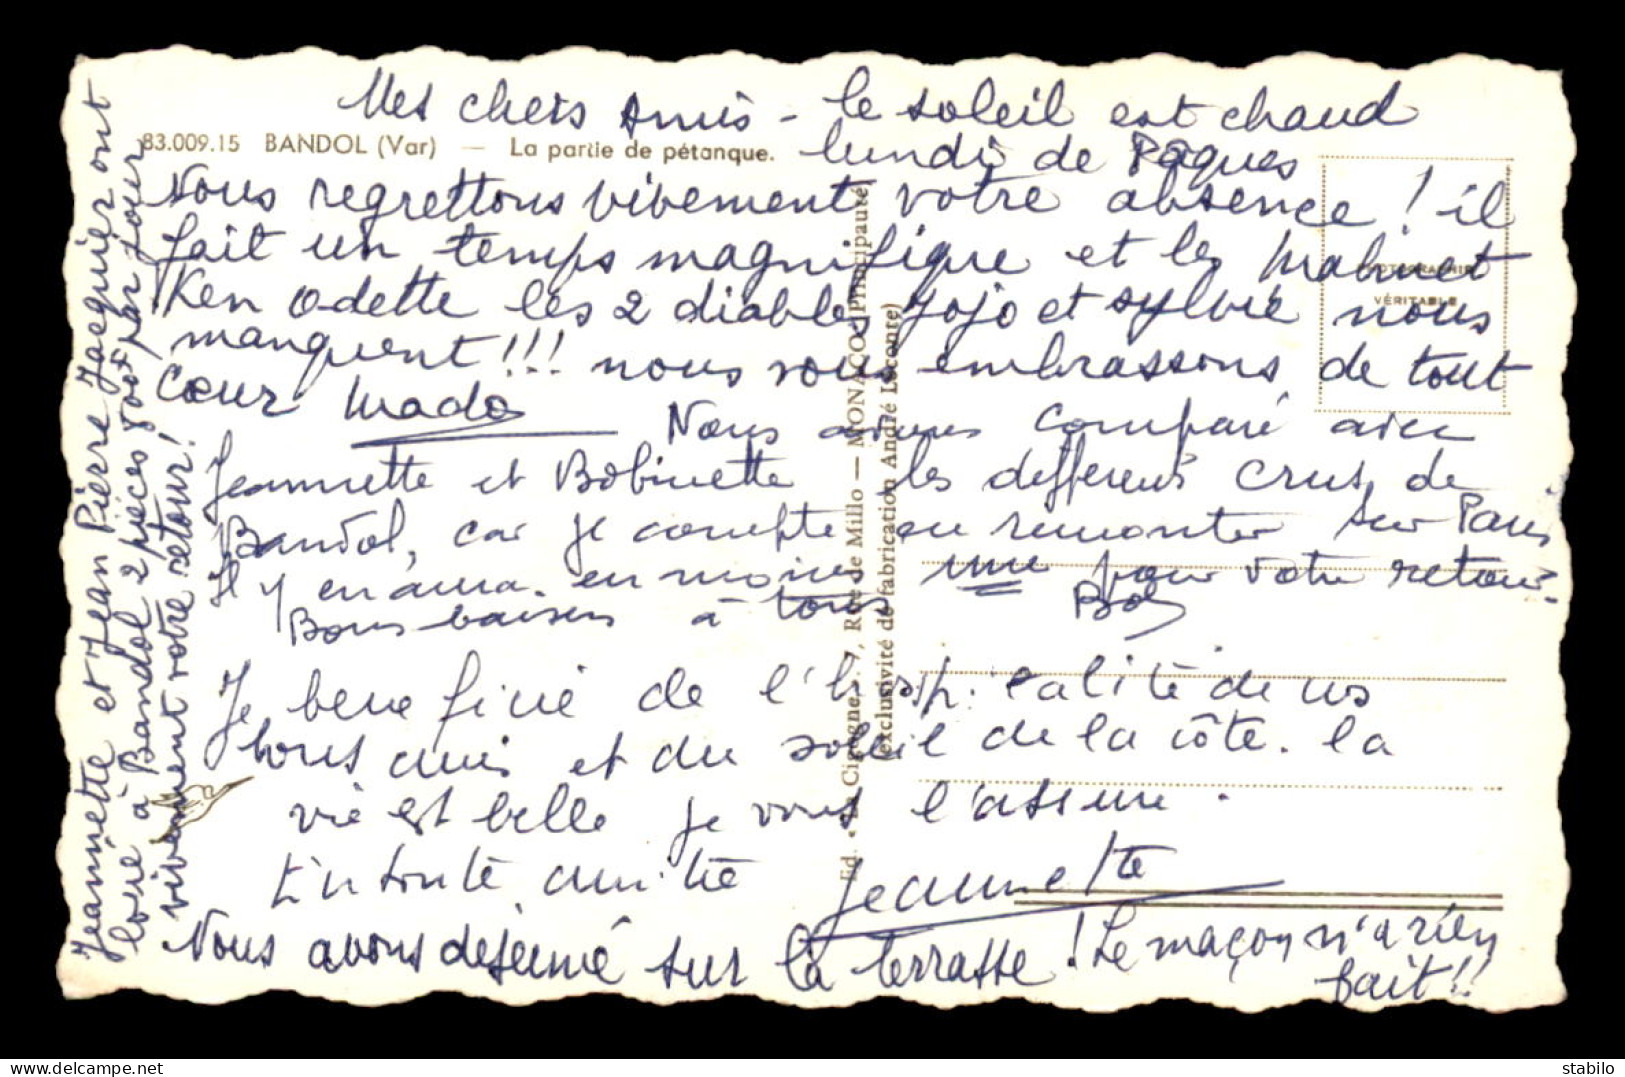 Mes chers amis - le soleil est chaud
83.009.15 BANDOL (Var) — La partie de pétanque.
lundi de Pâques
Nous regrettons vivement votre absence ! il
fait un temps magnifique et les
Ken Odette les 2 diables Jojo et Sylvie nous
manquent !!! nous vous embrassons de tout
cœur Mado
Nous avons comparé avec
Jeannette et Bobinette les differents crus de
Bandol, car je compte en remonter sur Paris
Il y en aura en moins une pour votre retour.
Bons baisers à tous Bob
Je beneficie de l'hospitalité de vos
bons amis et du soleil de la côte. la
vie est belle je vous l'assure.
En toute amitié Jeannette
Nous avons dejeuné sur la terrasse ! Le maçon n'a rien
fait !!
Jeannette et Jean Pierre Jacquier ont
loué à Bandol 2 pièces par jour
vivement votre retour !
Ed. 7, Rue de Millo — MONACO (Principauté)
(exclusivité de fabrication André Leconte)
PHOTOGRAPHIE
VÉRITABLE
www.delcampe.net
stabilo